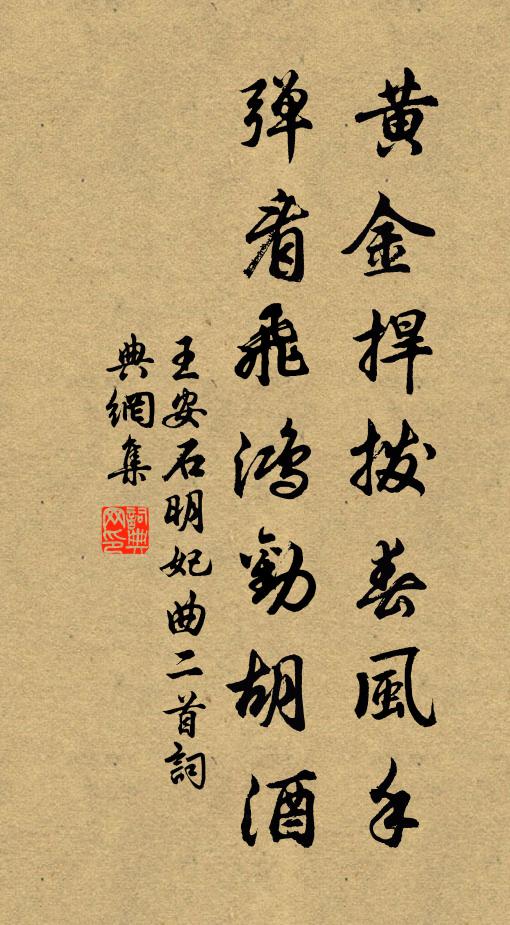 黃金捍撥春風手
彈看飛鴻勸胡酒
王安石明妃曲二首詞
典網集
詞典網印